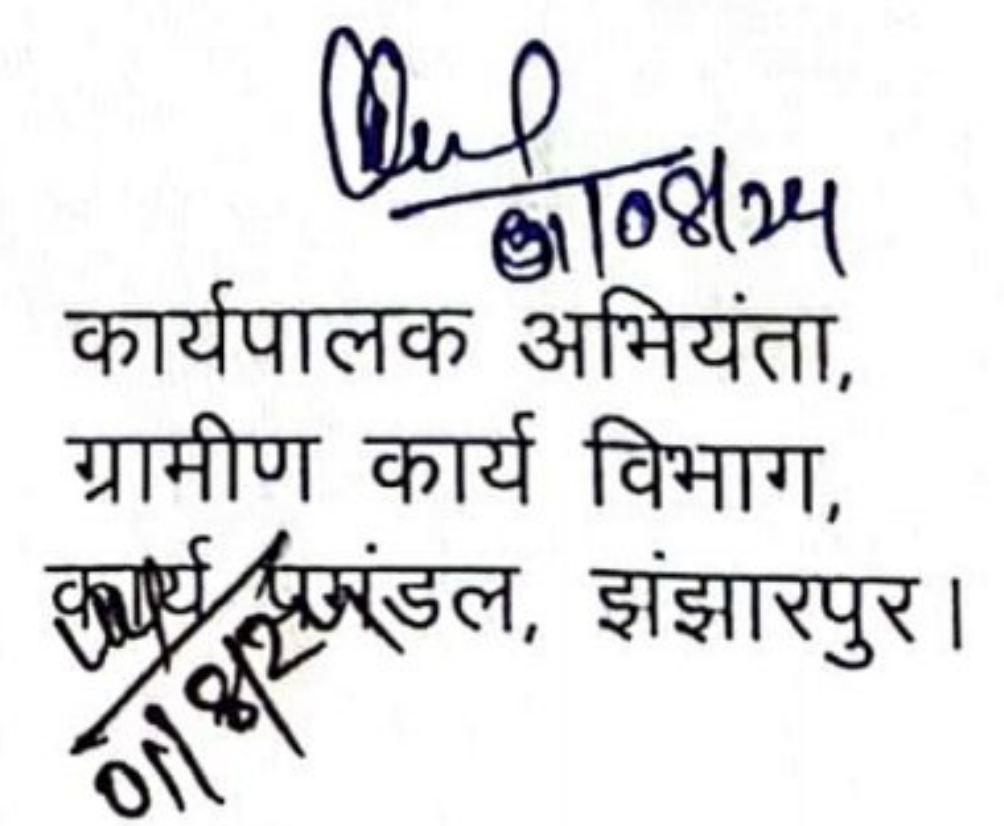 01/08/24
कार्यपालक अभियंता,
ग्रामीण कार्य विभाग,
कार्य प्रमंडल, झंझारपुर।
01/8/24